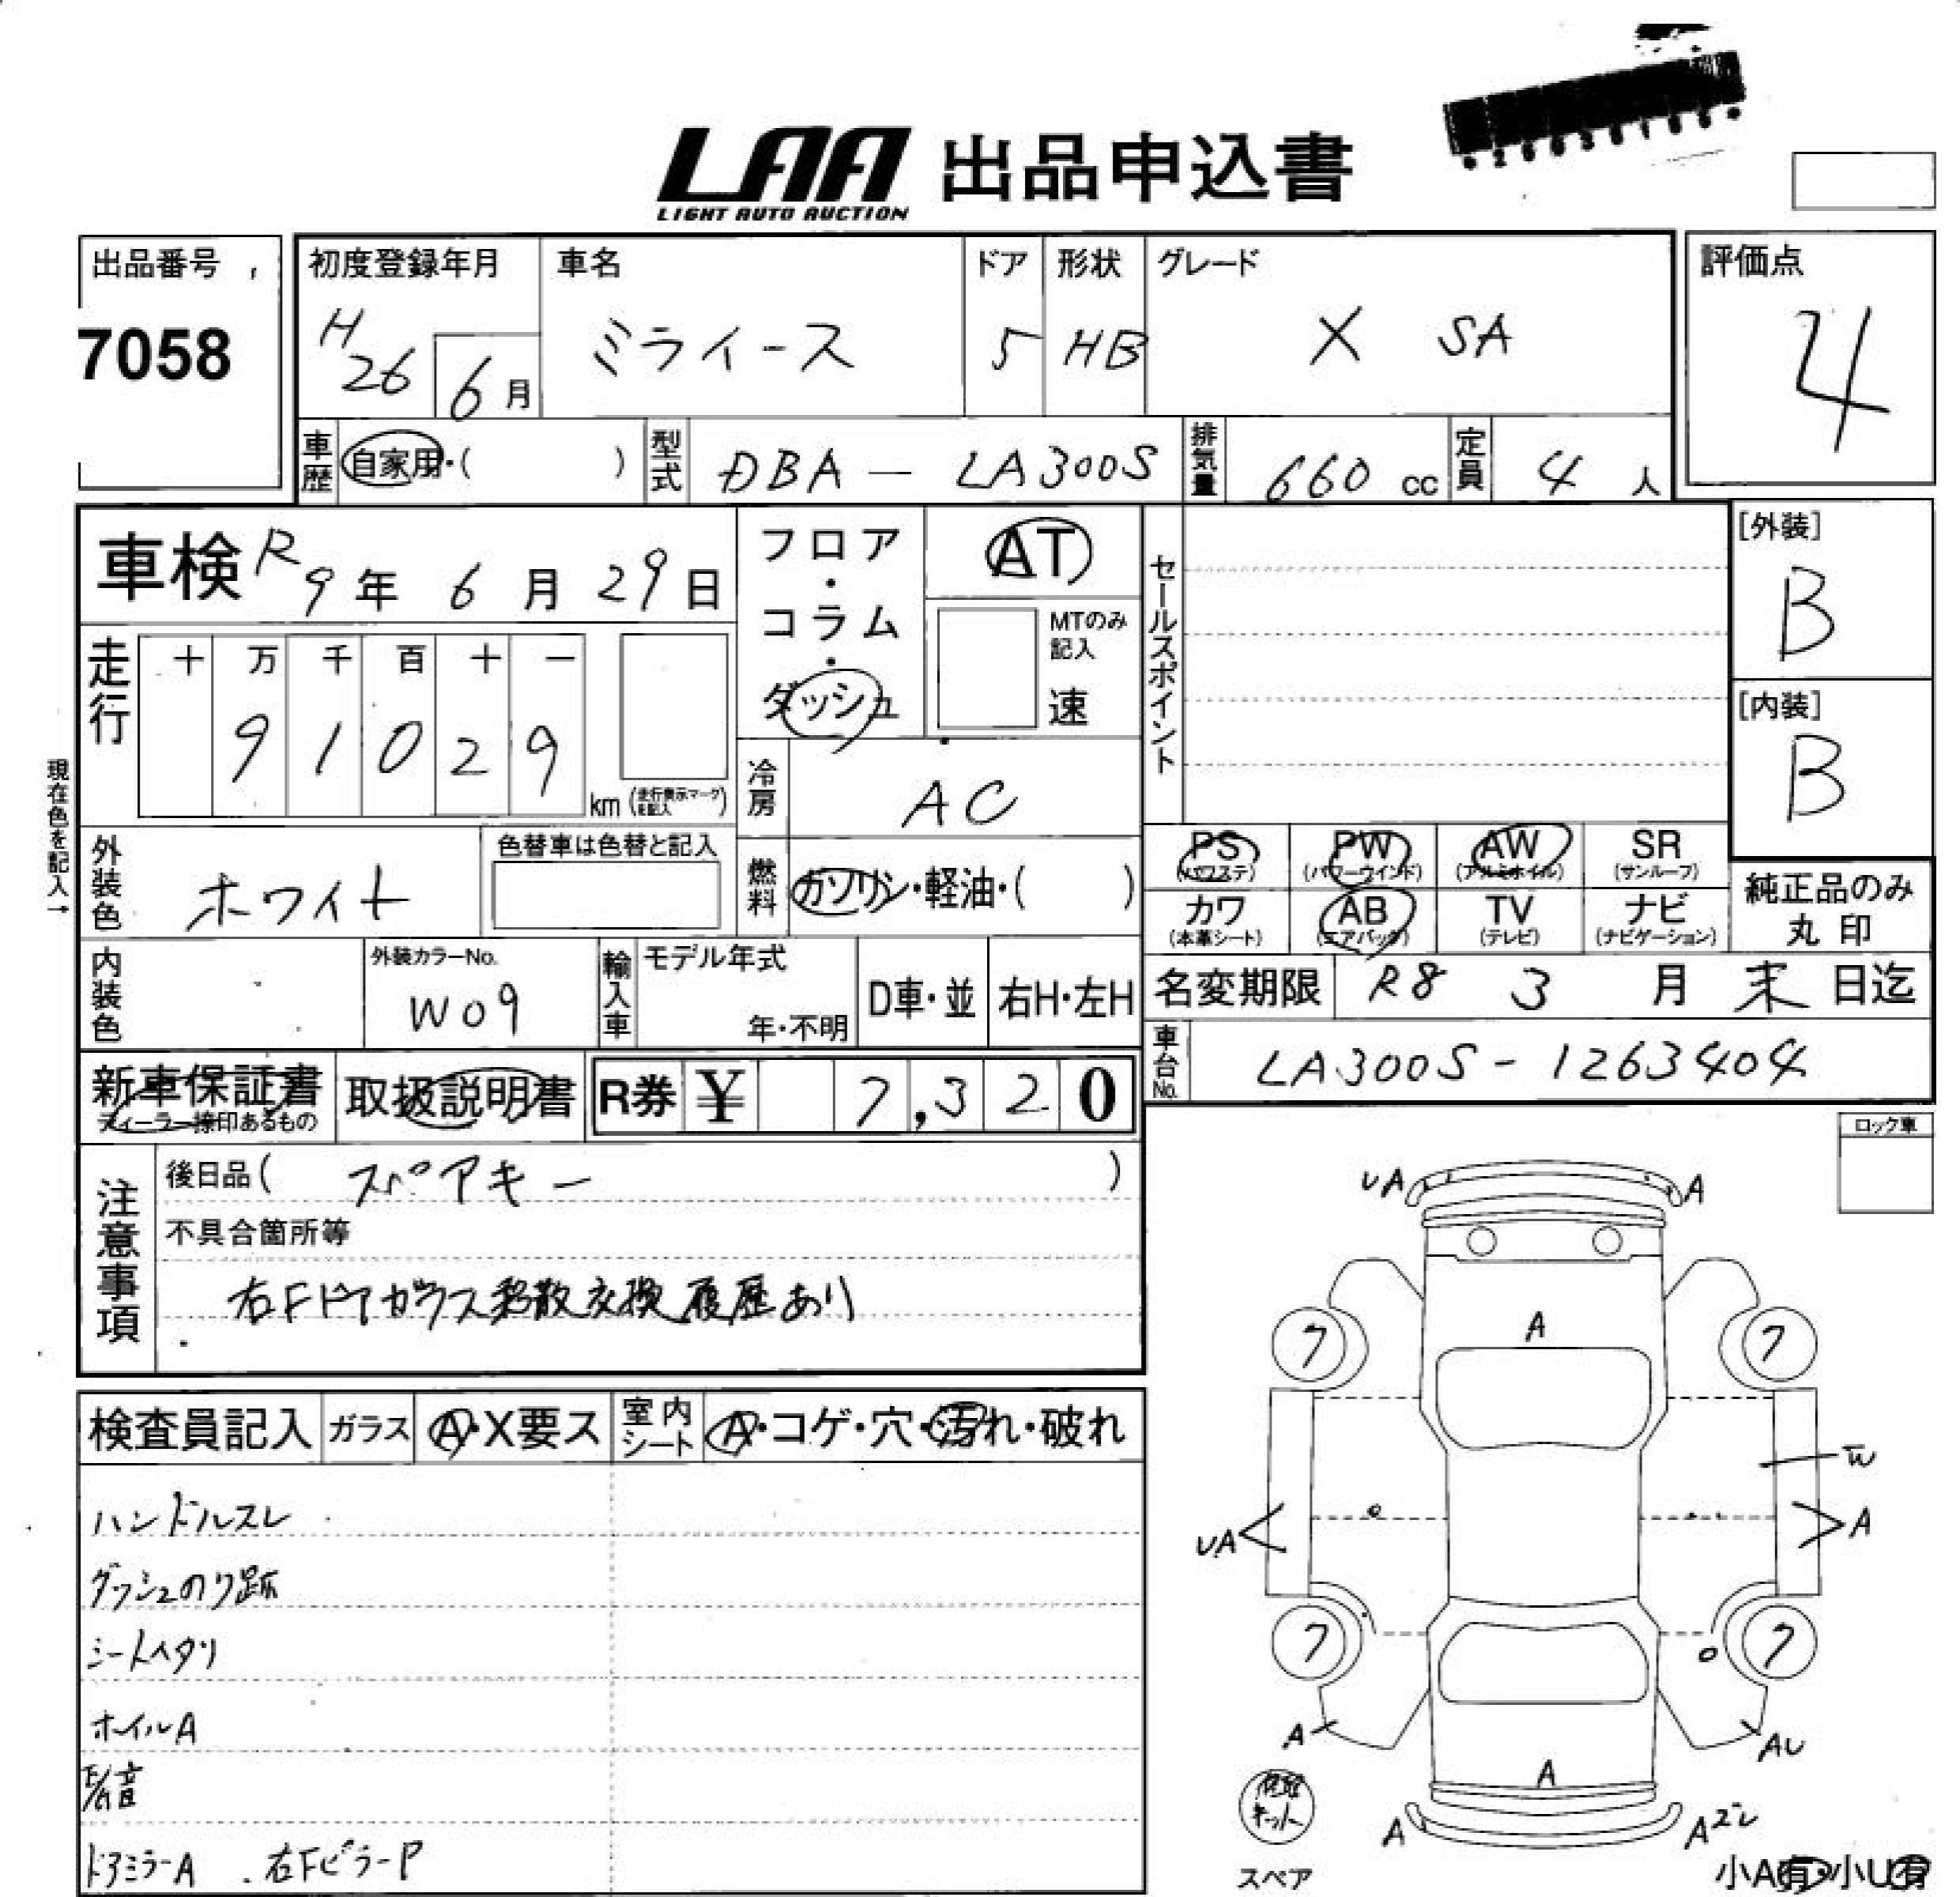 LAA 出品申込書
LIGHT AUTO AUCTION
出品番号
7058
初度登録年月
H26 6月
車名
ミライース
ドア
5
形状
HB
グレード
X SA
評価点
4
車歴 自家用・( )
型式 DBA - LA300S
排気量 660 cc
定員 4 人
車検 R9年 6月 29日
フロア・コラム・ダッシュ
AT
MTのみ記入
速
セールスポイント
[外装]
B
[内装]
B
走行
十 万 千 百 十 一
9 1 0 2 9
km (走行表示マークを記入)
冷房 AC
現在色を記入→
外装色 ホワイト
色替車は色替と記入
燃料 ガソリン・軽油・( )
PS (パワステ)
PW (パワーウインド)
AW (アルミホイル)
SR (サンルーフ)
カワ (本革シート)
AB (エアバッグ)
TV (テレビ)
ナビ (ナビゲーション)
純正品のみ
丸印
内装色
外装カラーNo.
W09
輸入車
モデル年式
年・不明
D車・並
右H・左H
名変期限 R8 3月 末日迄
車台No. LA300S-1263404
新車保証書
ディーラー捺印あるもの
取扱説明書
R券 ¥ 7,320
注意事項
後日品( スペアキー )
不具合箇所等
右Fドアガラス飛散交換履歴あり
ロック車
検査員記入
ガラス A・X要ス
室内シート A・コゲ・穴・汚れ・破れ
ハンドルスレ
ダッシュのり跡
シートヘタリ
ホイルA
ドアミラーA . 右FピラーP
UA
A
A
7
7
W
UA
A
7
7
A
AU
A
A
Aズレ
スペア
小A有・小U有